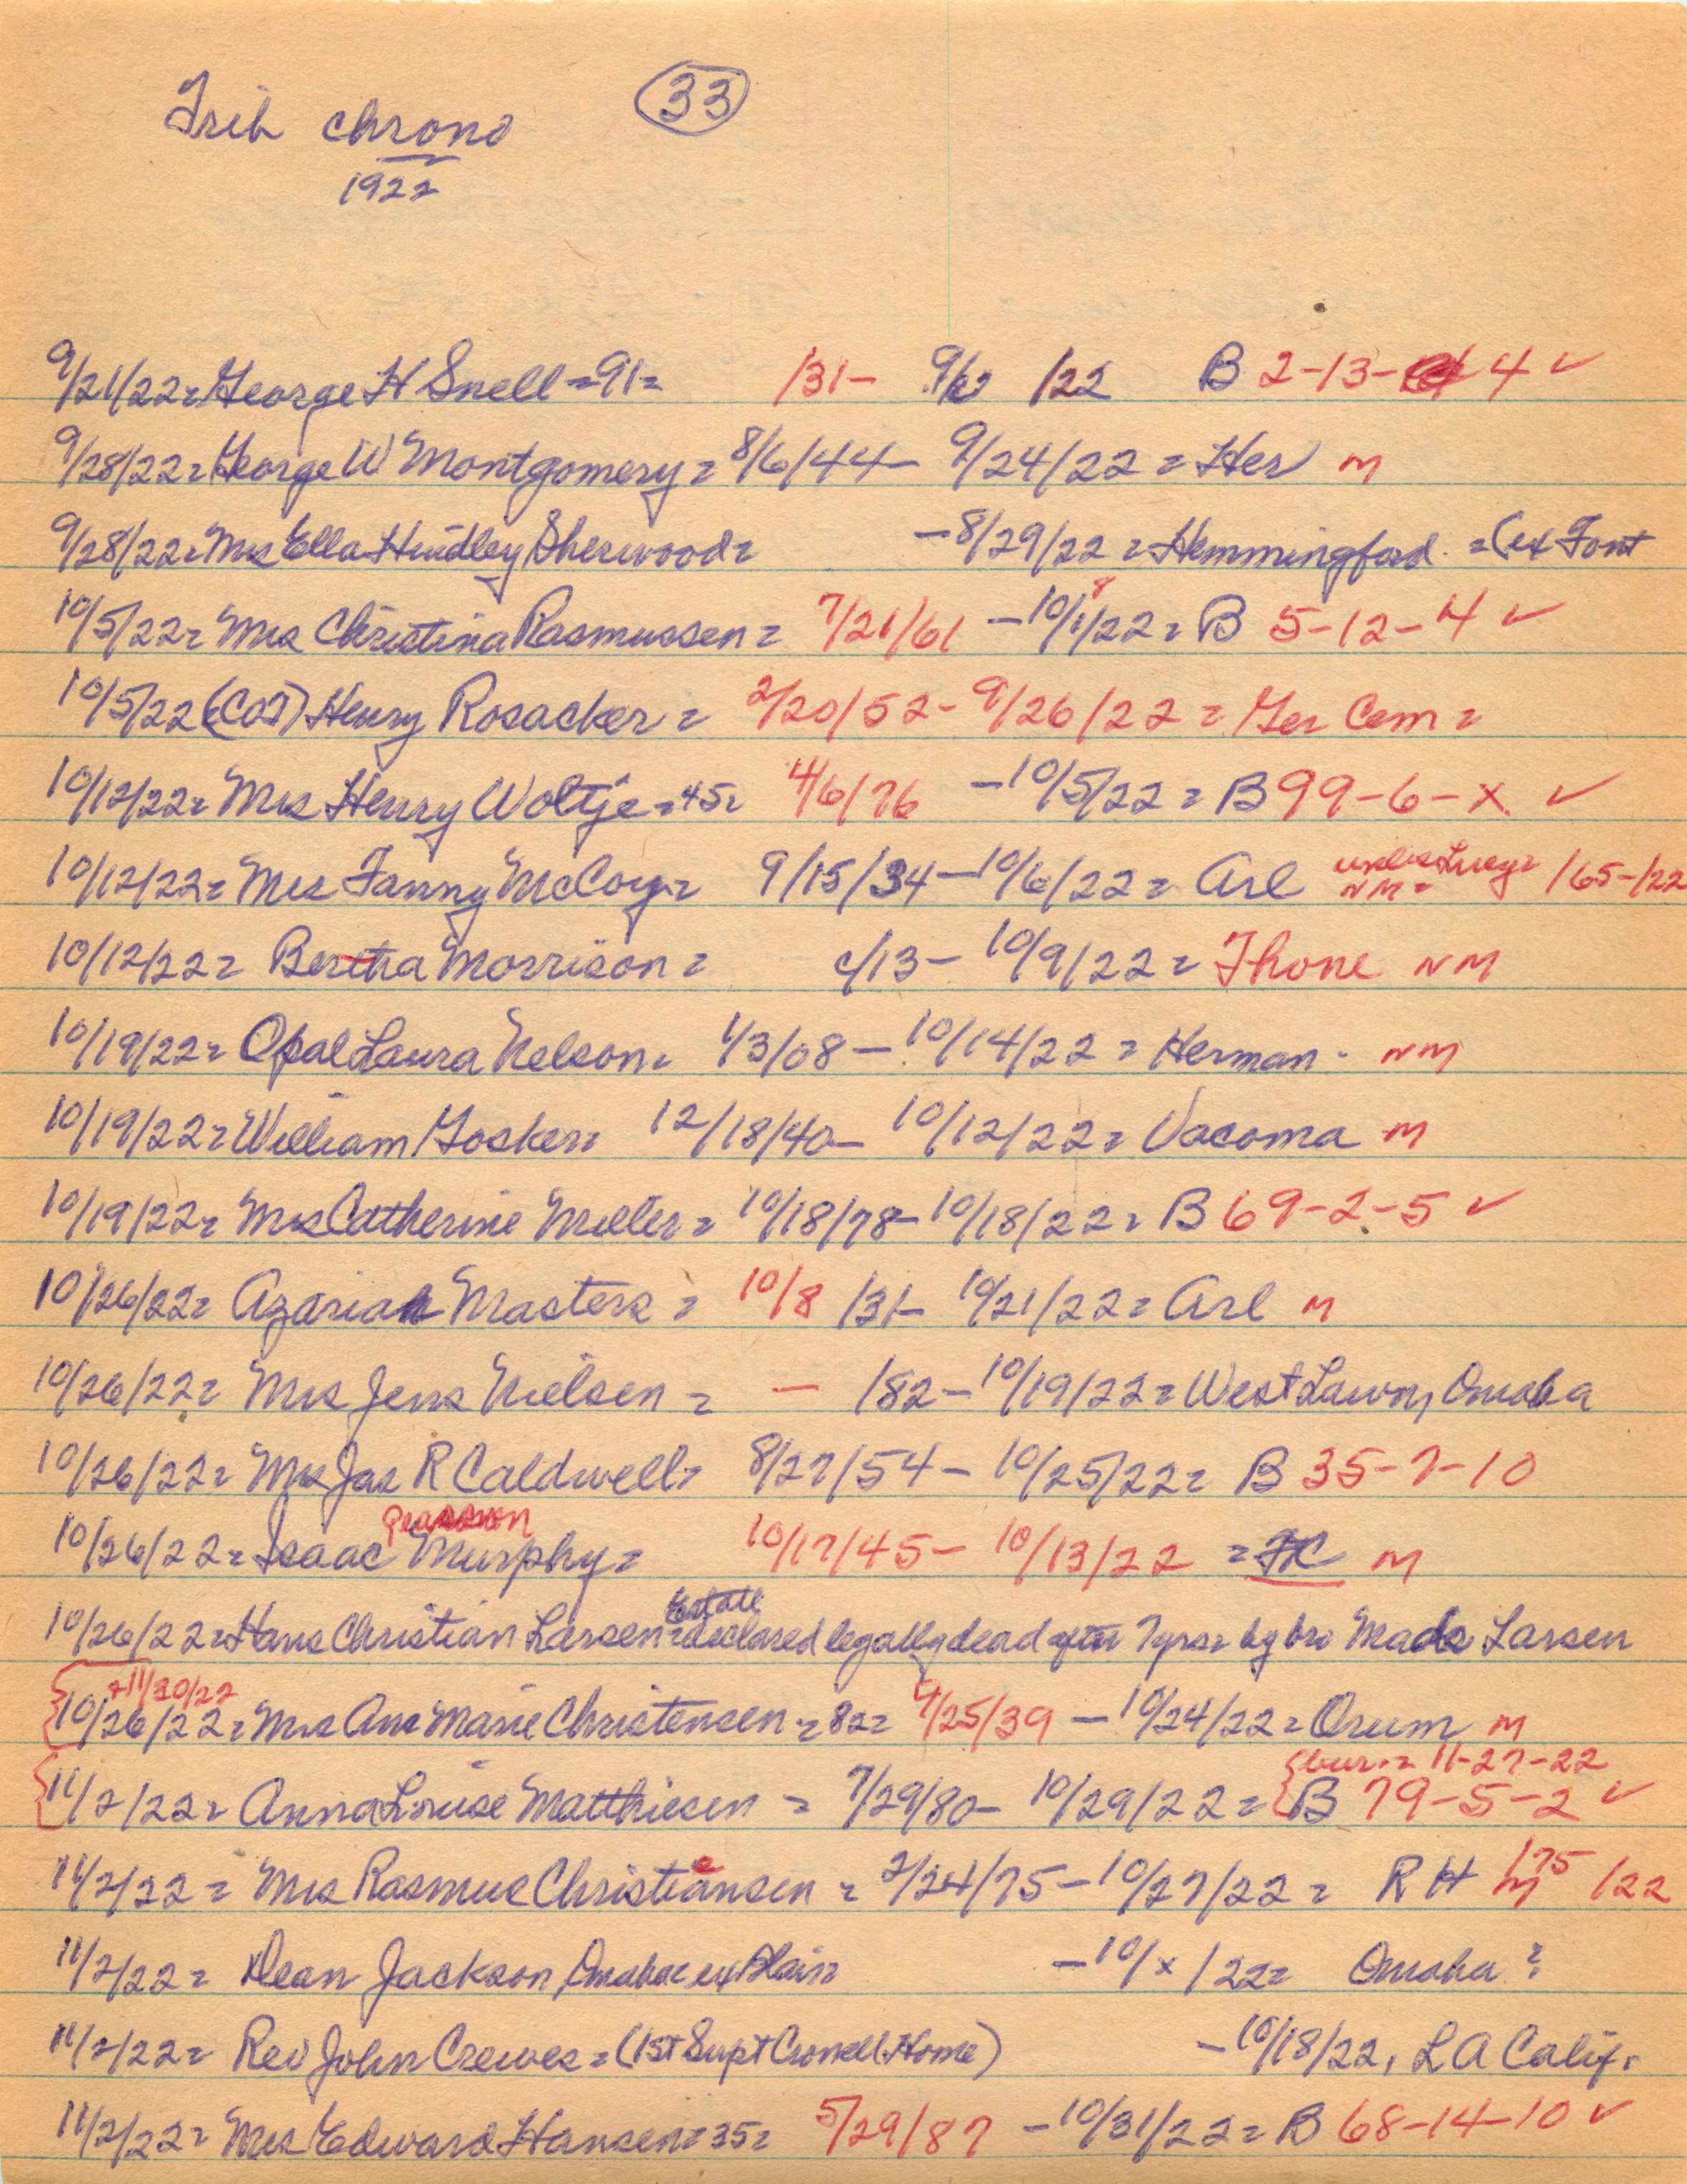 Trib chrono 33
1922
9/21/22= George H Snell =91= /31- 9/ /22 B 2-13- 4 ✓
9/28/22= George W Montgomery = 8/6/44- 9/24/22 = Her M
9/28/22= Mrs Ella Hindley Sherwood= -8/29/22 = Hemmingford = (ex Font
10/5/22= Mrs Christina Rasmussen = 7/21/61 -10/1/22 = B 5-12-4 ✓
10/5/22 (COT) Henry Rosacker = 2/20/52- 9/26/22 = Ger Cem =
10/12/22= Mrs Henry Woltje =45= 4/6/76 -10/5/22 = B 99-6-x ✓
10/12/22= Mrs Fanny McCoy= 9/15/34-10/6/22= Arl unless Lucy= NM= /65-/22
10/12/22= Bertha Morrison = c/13- 10/9/22= Thone NM
10/19/22= Opal Laura Nelson= 1/3/08- 10/14/22 = Herman - NM
10/19/22= William Gosker= 12/18/40- 10/12/22= Vacoma M
10/19/22= Mrs Catherine Meeler= 10/18/78- 10/18/22= B 69-2-5 ✓
10/26/22= Azariah Masters = 10/8 /31- 10/21/22= Arl M
10/26/22= Mrs Jens Nielsen = - /82- 10/19/22= West Lawn, Omaha
10/26/22= Mrs Jas R Caldwell= 8/27/54- 10/25/22= B 35-7-10
Pearson
10/26/22= Isaac Murphy= 10/17/45- 10/13/22 = FC M
Estate
10/26/22= Hans Christian Larsen= declared legally dead after 7yrs= by bro Mads Larsen
+11/30/22
10/26/22= Mrs Ane Marie Christensen =82= 4/25/39 -10/24/22= Orum M
bur. = 11-27-22
11/2/22= Anna Louise Matthiesen = 7/29/80- 10/29/22= B 79-5-2 ✓
11/2/22= Mrs Rasmus Christiansen = 2/24/75-10/27/22 = RH M /75 /22
11/2/22= Dean Jackson, Omaha= ex Blair= -10/x/22= Omaha?
11/2/22= Rev John Crewes =(1st Supt Crowell Home) -10/18/22, LA Calif.
11/2/22= Mrs Edward Hansen=35= 5/29/87 -10/31/22= B 68-14-10 ✓